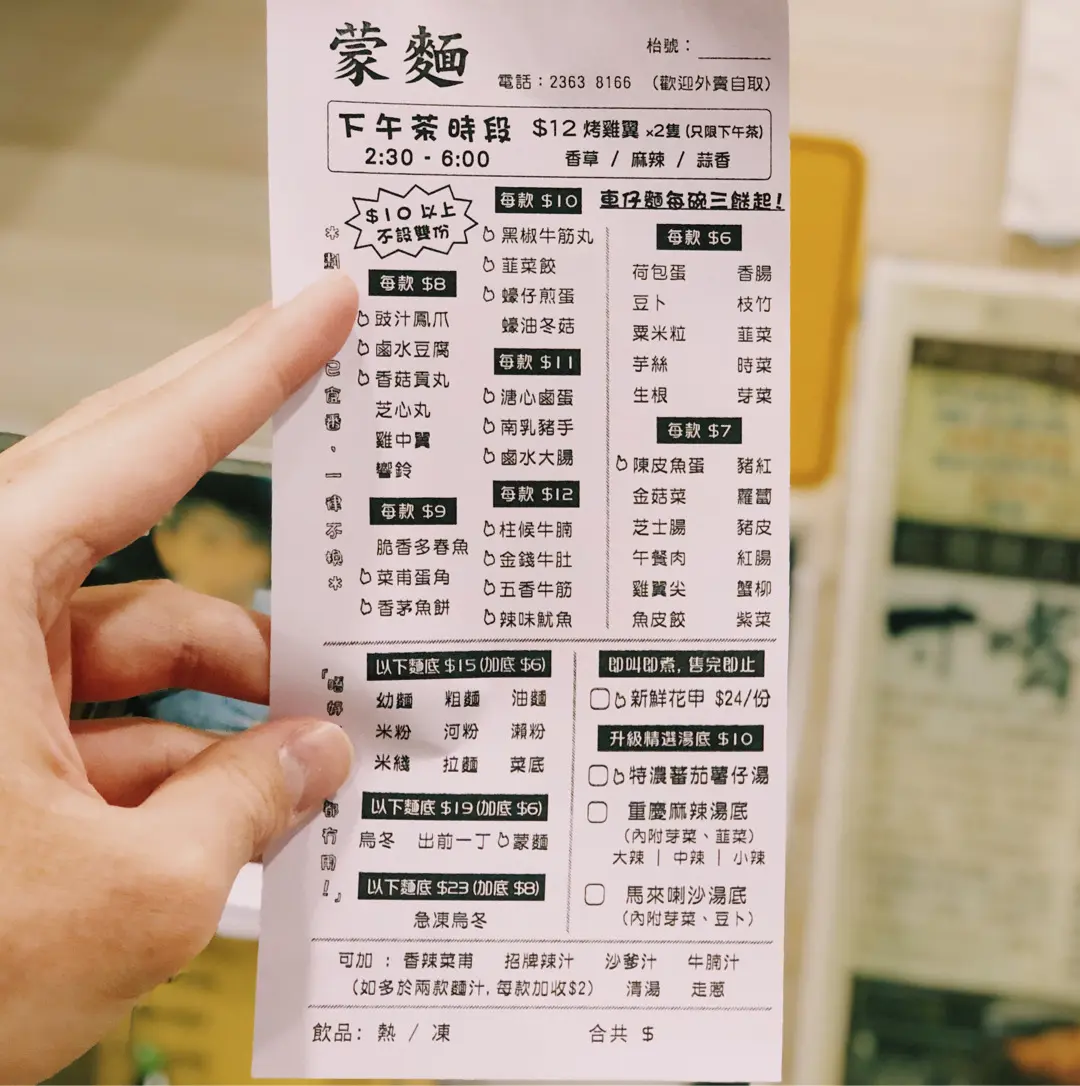 蒙麵
枱號：
電話：2363 8166 （歡迎外賣自取）
下午茶時段 $12 烤雞翼 x2隻 (只限下午茶)
2:30 - 6:00 香草 / 麻辣 / 蒜香
$10 以上
不設雙份
每款 $8
豉汁鳳爪
鹵水豆腐
香菇貢丸
芝心丸
雞中翼
響鈴
每款 $9
脆香多春魚
菜甫蛋角
香茅魚餅
每款 $10
黑椒牛筋丸
韮菜餃
蠔仔煎蛋
蠔油冬菇
每款 $11
溏心鹵蛋
南乳豬手
鹵水大腸
每款 $12
柱候牛腩
金錢牛肚
五香牛筋
辣味魷魚
車仔麵每碗三餸起!
每款 $6
荷包蛋 香腸
豆卜 枝竹
粟米粒 韮菜
芋絲 時菜
生根 芽菜
每款 $7
陳皮魚蛋 豬紅
金菇菜 蘿蔔
芝士腸 豬皮
午餐肉 紅腸
雞翼尖 蟹柳
魚皮餃 紫菜
以下麵底 $15 (加底 $6)
幼麵 粗麵 油麵
米粉 河粉 瀨粉
米綫 拉麵 菜底
以下麵底 $19 (加底 $6)
烏冬 出前一丁 蒙麵
以下麵底 $23 (加底 $8)
急凍烏冬
即叫即煮, 售完即止
新鮮花甲 $24/份
升級精選湯底 $10
特濃蕃茄薯仔湯
重慶麻辣湯底
（內附芽菜、韮菜）
大辣 | 中辣 | 小辣
馬來喇沙湯底
（內附芽菜、豆卜）
可加 : 香辣菜甫 招牌辣汁 沙爹汁 牛腩汁
（如多於兩款麵汁, 每款加收$2） 清湯 走蔥
飲品: 熱 / 凍 合共 $